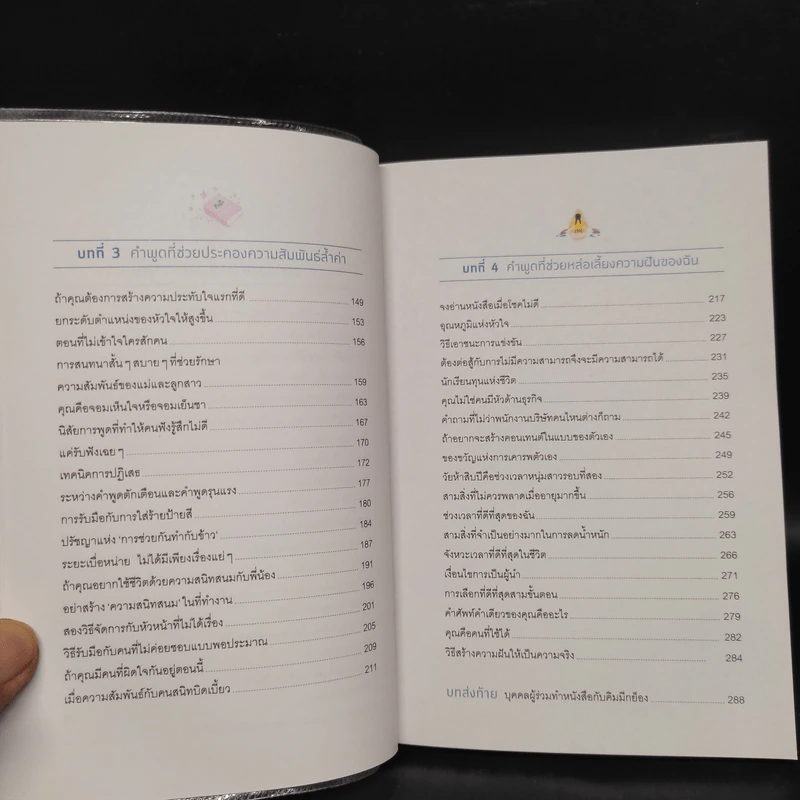 บทที่ 3 คำพูดที่ช่วยประคองความสัมพันธ์ล้ำค่า
ถ้าคุณต้องการสร้างความประทับใจแรกที่ดี 149
ยกระดับตำแหน่งของหัวใจให้สูงขึ้น 153
ตอนที่ไม่เข้าใจใครสักคน 156
การสนทนาสั้น ๆ สบาย ๆ ที่ช่วยรักษา
ความสัมพันธ์ของแม่และลูกสาว 159
คุณคือจอมเห็นใจหรือจอมเย็นชา 163
นิสัยการพูดที่ทำให้คนฟังรู้สึกไม่ดี 167
แค่รับฟังเฉย ๆ 170
เทคนิคการปฏิเสธ 172
ระหว่างคำพูดตักเตือนและคำพูดรุนแรง 177
การรับมือกับการใส่ร้ายป้ายสี 180
ปรัชญาแห่ง ‘การช่วยกันทำกับข้าว’ 184
ระยะเบื่อหน่าย ไม่ได้มีเพียงเรื่องแย่ ๆ 187
ถ้าคุณอยากใช้ชีวิตด้วยความสนิทสนมกับพี่น้อง 191
อย่าสร้าง ‘ความสนิทสนม’ ในที่ทำงาน 196
สองวิธีจัดการกับหัวหน้าที่ไม่ได้เรื่อง 201
วิธีรับมือกับคนที่ไม่ค่อยชอบแบบพอประมาณ 205
ถ้าคุณมีคนที่ผิดใจกันอยู่ตอนนี้ 209
เมื่อความสัมพันธ์กับคนสนิทบิดเบี้ยว 211
บทที่ 4 คำพูดที่ช่วยหล่อเลี้ยงความฝันของฉัน
จงอ่านหนังสือเมื่อโชคไม่ดี 217
อุณหภูมิแห่งหัวใจ 223
วิธีเอาชนะการแข่งขัน 227
ต้องต่อสู้กับการไม่มีความสามารถจึงจะมีความสามารถได้ 231
นักเรียนทุนแห่งชีวิต 235
คุณไม่ใช่คนมีหัวด้านธุรกิจ 239
คำถามที่ไม่ว่าพนักงานบริษัทคนไหนต่างก็ถาม 242
ถ้าอยากจะสร้างคอนเทนต์ในแบบของตัวเอง 245
ของขวัญแห่งการเคารพตัวเอง 249
วัยห้าสิบปีคือช่วงเวลาหนุ่มสาวรอบที่สอง 252
สามสิ่งที่ไม่ควรพลาดเมื่ออายุมากขึ้น 256
ช่วงเวลาที่ดีที่สุดของฉัน 259
สามสิ่งที่จำเป็นอย่างมากในการลดน้ำหนัก 263
จังหวะเวลาที่ดีที่สุดในชีวิต 266
เงื่อนไขการเป็นผู้นำ 271
การเลือกที่ดีที่สุดสามขั้นตอน 276
คำศัพท์คำเดียวของคุณคืออะไร 279
คุณคือคนที่ใช้ได้ 282
วิธีสร้างความฝันให้เป็นความจริง 284
บทส่งท้าย บุคคลผู้ร่วมทำหนังสือกับคิมมีกย็อง 288